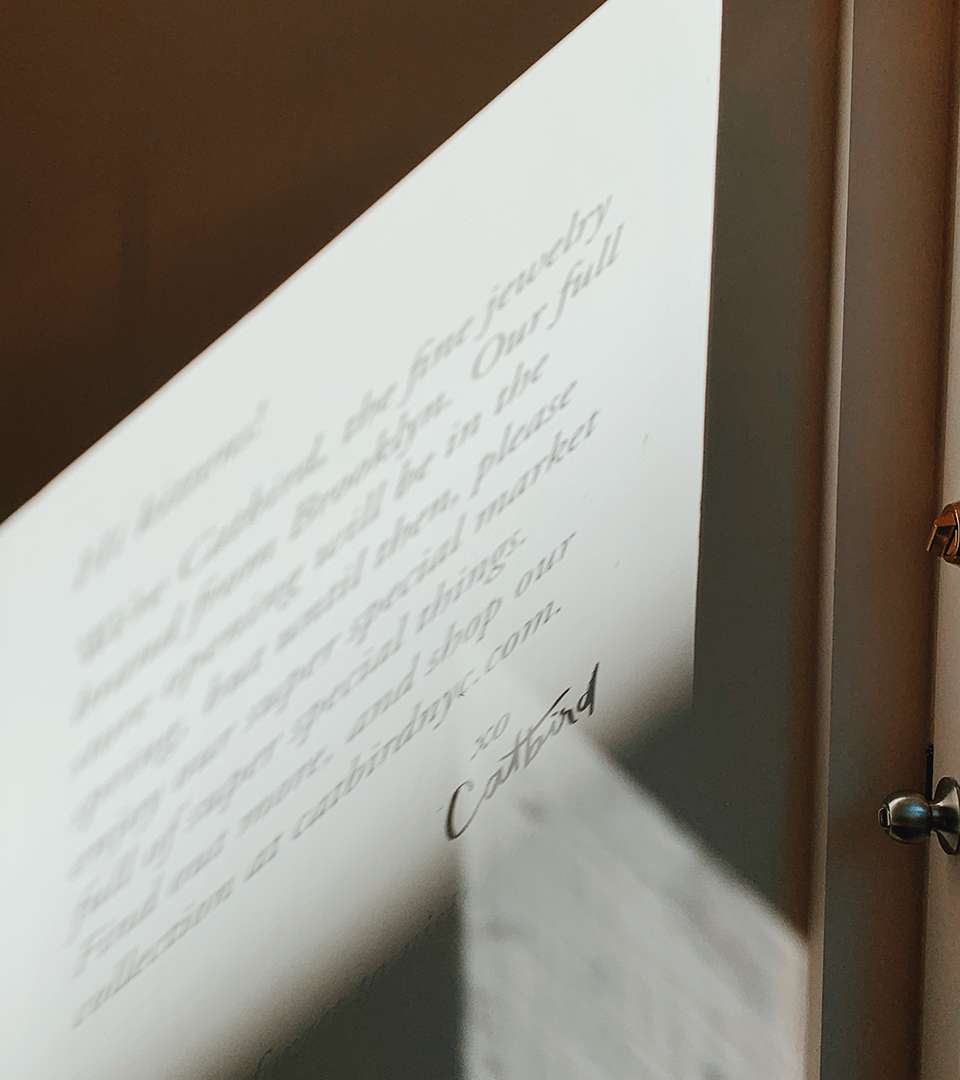 Hi
We're Catbird, the fine jewelry
brand from Brooklyn. Our full
opening will be in the
spring, but until then, please
enjoy our super special market
full of super-special things.
Find out more, and shop our
collection at catbirdnyc.com.
xo
Catbird